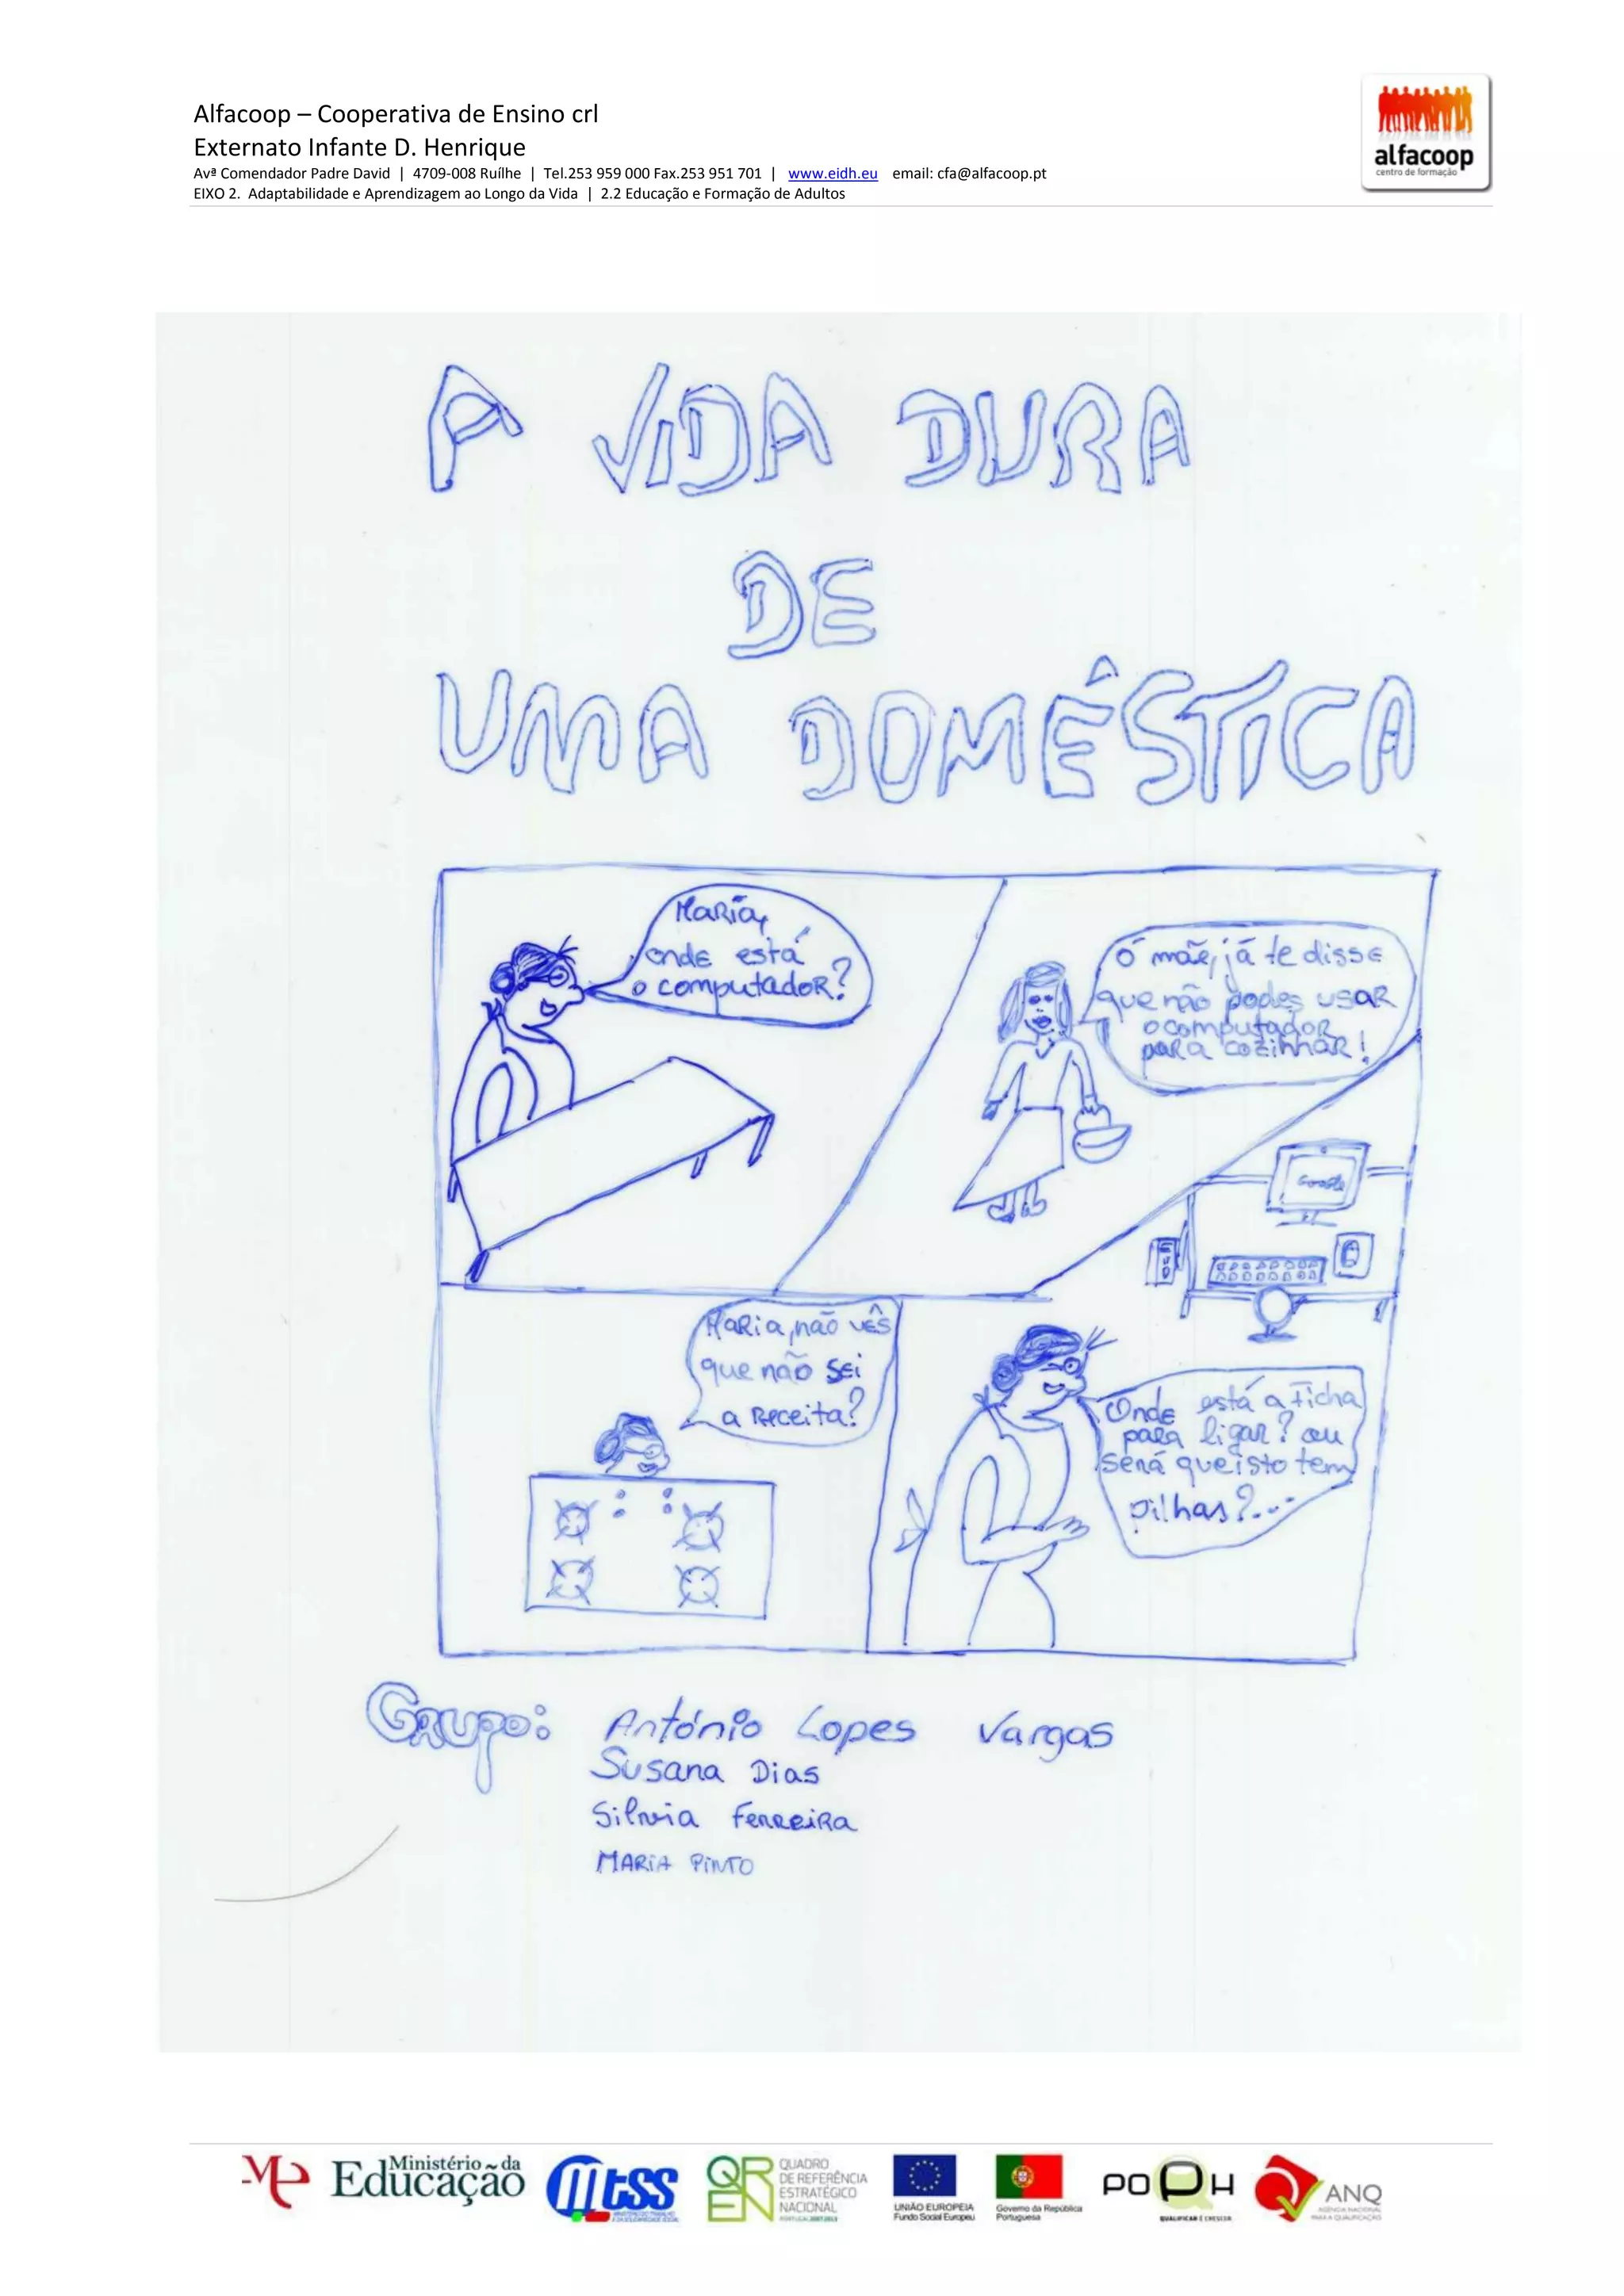 Alfacoop – Cooperativa de Ensino crl
Externato Infante D. Henrique
Avª Comendador Padre David | 4709-008 Ruílhe | Tel.253 959 000 Fax.253 951 701 | www.eidh.eu email: cfa@alfacoop.pt
EIXO 2. Adaptabilidade e Aprendizagem ao Longo da Vida | 2.2 Educação e Formação de Adultos
alfacoop
centro de formação
A VIDA DURA
DE
UMA DOMÊSTICA
Maria,
onde está
o computador?
Ó mãe, já te disse
que não podes usar
o computador
para cozinhar!
Google
Maria, não vês
que não sei
a receita?
Onde está a ficha
para ligar? ou
será que isto tem
pilhas?...
Grupo: António Lopes Vargas
Susana Dias
Silvia Ferreira
MARIA PINTO
Ministério da
Educação
mtss
QREN
QUADRO
DE REFERÊNCIA
ESTRATÉGICO
NACIONAL
PORTUGAL 2007.2013
UNIÃO EUROPEIA
Fundo Social Europeu
Governo da República
Portuguesa
POPH
QUALIFICAR É CRESCER
ANQ
AGÊNCIA NACIONAL
PARA A QUALIFICAÇÃO